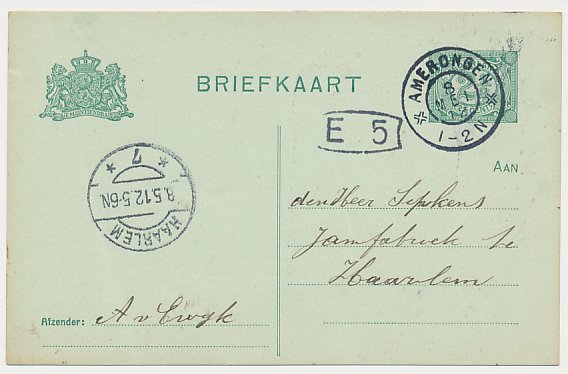 BRIEFKAART
AMERONGEN
8
MEI
12
1-2N
E 5
AAN
HAARLEM
8.5.12.5-6N
* 7 *
den Heer Sepkens
Jamfabriek te
Haarlem
Afzender: A v Ewyk